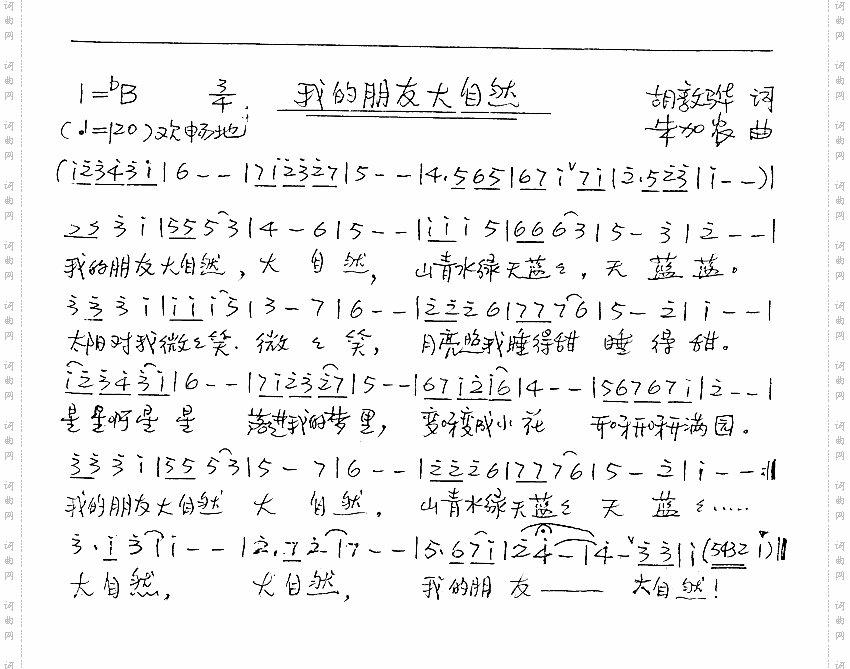 1=bB 3/4 我的朋友大自然 胡敦骅 词
(♩=120)欢畅地 朱加农 曲
(i23431|6--|7i2327|5--|4.565|67i^v7i|2.523|i--)|
55 3 i|55 5 3|4-6|5--|i i i 5|66 6 3|5-3|2--|
我的朋友大自然,大 自 然, 山青水绿天蓝蓝,天 蓝 蓝。
3 3 3 i|i i i 5|3-7|6--|2 2 2 6|7 7 7 6|5-2|i--|
太阳对我微微笑.微 微 笑, 月亮照我睡得甜 睡 得 甜。
i23431|6--|7i2327|5--|67i2i6|4--|56767i|2--|
星星啊星 星 落进我的梦里, 变呀变成小花 开呀开呀开满园。
3 3 3 i|55 5 3|5-7|6--|2 2 2 6|7 7 7 6|5-2|i--:||
我的朋友大自然 大 自 然, 山青水绿天蓝蓝 天 蓝 蓝……
3.i 3|i--|2.7 2|7--|5.67i|2 4-|4-^v3 3|i(5432 i)||
大自然, 大自然, 我的朋 友—— 大自然!
词曲网